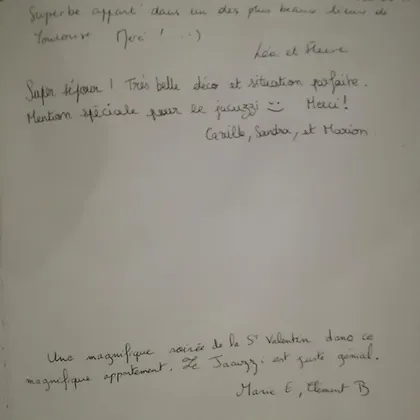 Superbe appart' dans un des plus beaux lieux de
Toulouse Merci ! :-)
Léa et Pierre
Super séjour ! Très belle déco et situation parfaite.
Mention spéciale pour le jacuzzi Merci !
Camille, Sandra, et Marion
Une magnifique soirée de la St Valentin dans ce
magnifique appartement. Le Jacuzzi est juste génial.
Marie E, Clément B